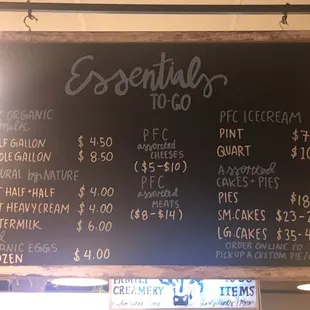 Essentials
TO-GO
C ORGANIC
milk
LF GALLON $4.50
OLE GALLON $8.50
URAL by NATURE
T HALF+HALF $4.00
T HEAVY CREAM $4.00
TERMILK $6.00
ANIC EGGS
OZEN $4.00
PFC
assorted
CHEESES
($5-$10)
PFC
assorted
MEATS
($8-$14)
PFC ICECREAM
PINT $7
QUART $10
Assorted
CAKES + PIES
PIES $18
SM. CAKES $23-2
LG. CAKES $35-4
ORDER ONLINE TO
PICK UP A CUSTOM PIE/
FAMILY
CREAMERY
ITEMS